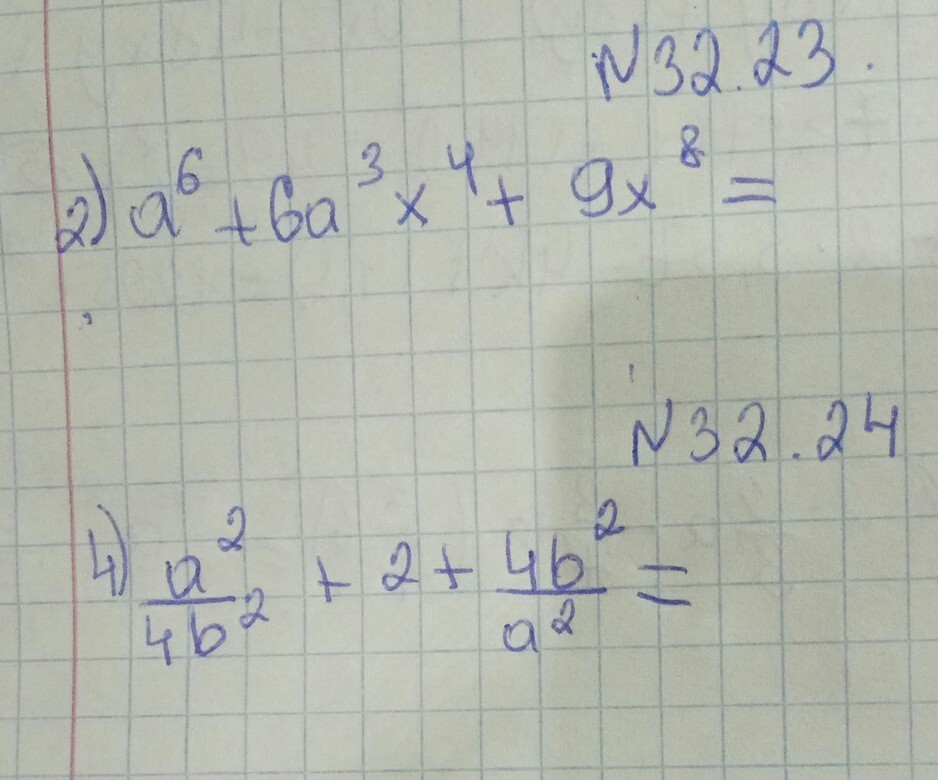 N32.23.
2) a⁶ + 6a³x⁴ + 9x⁸ =
N32.24
4) a²/4b² + 2 + 4b²/a² =